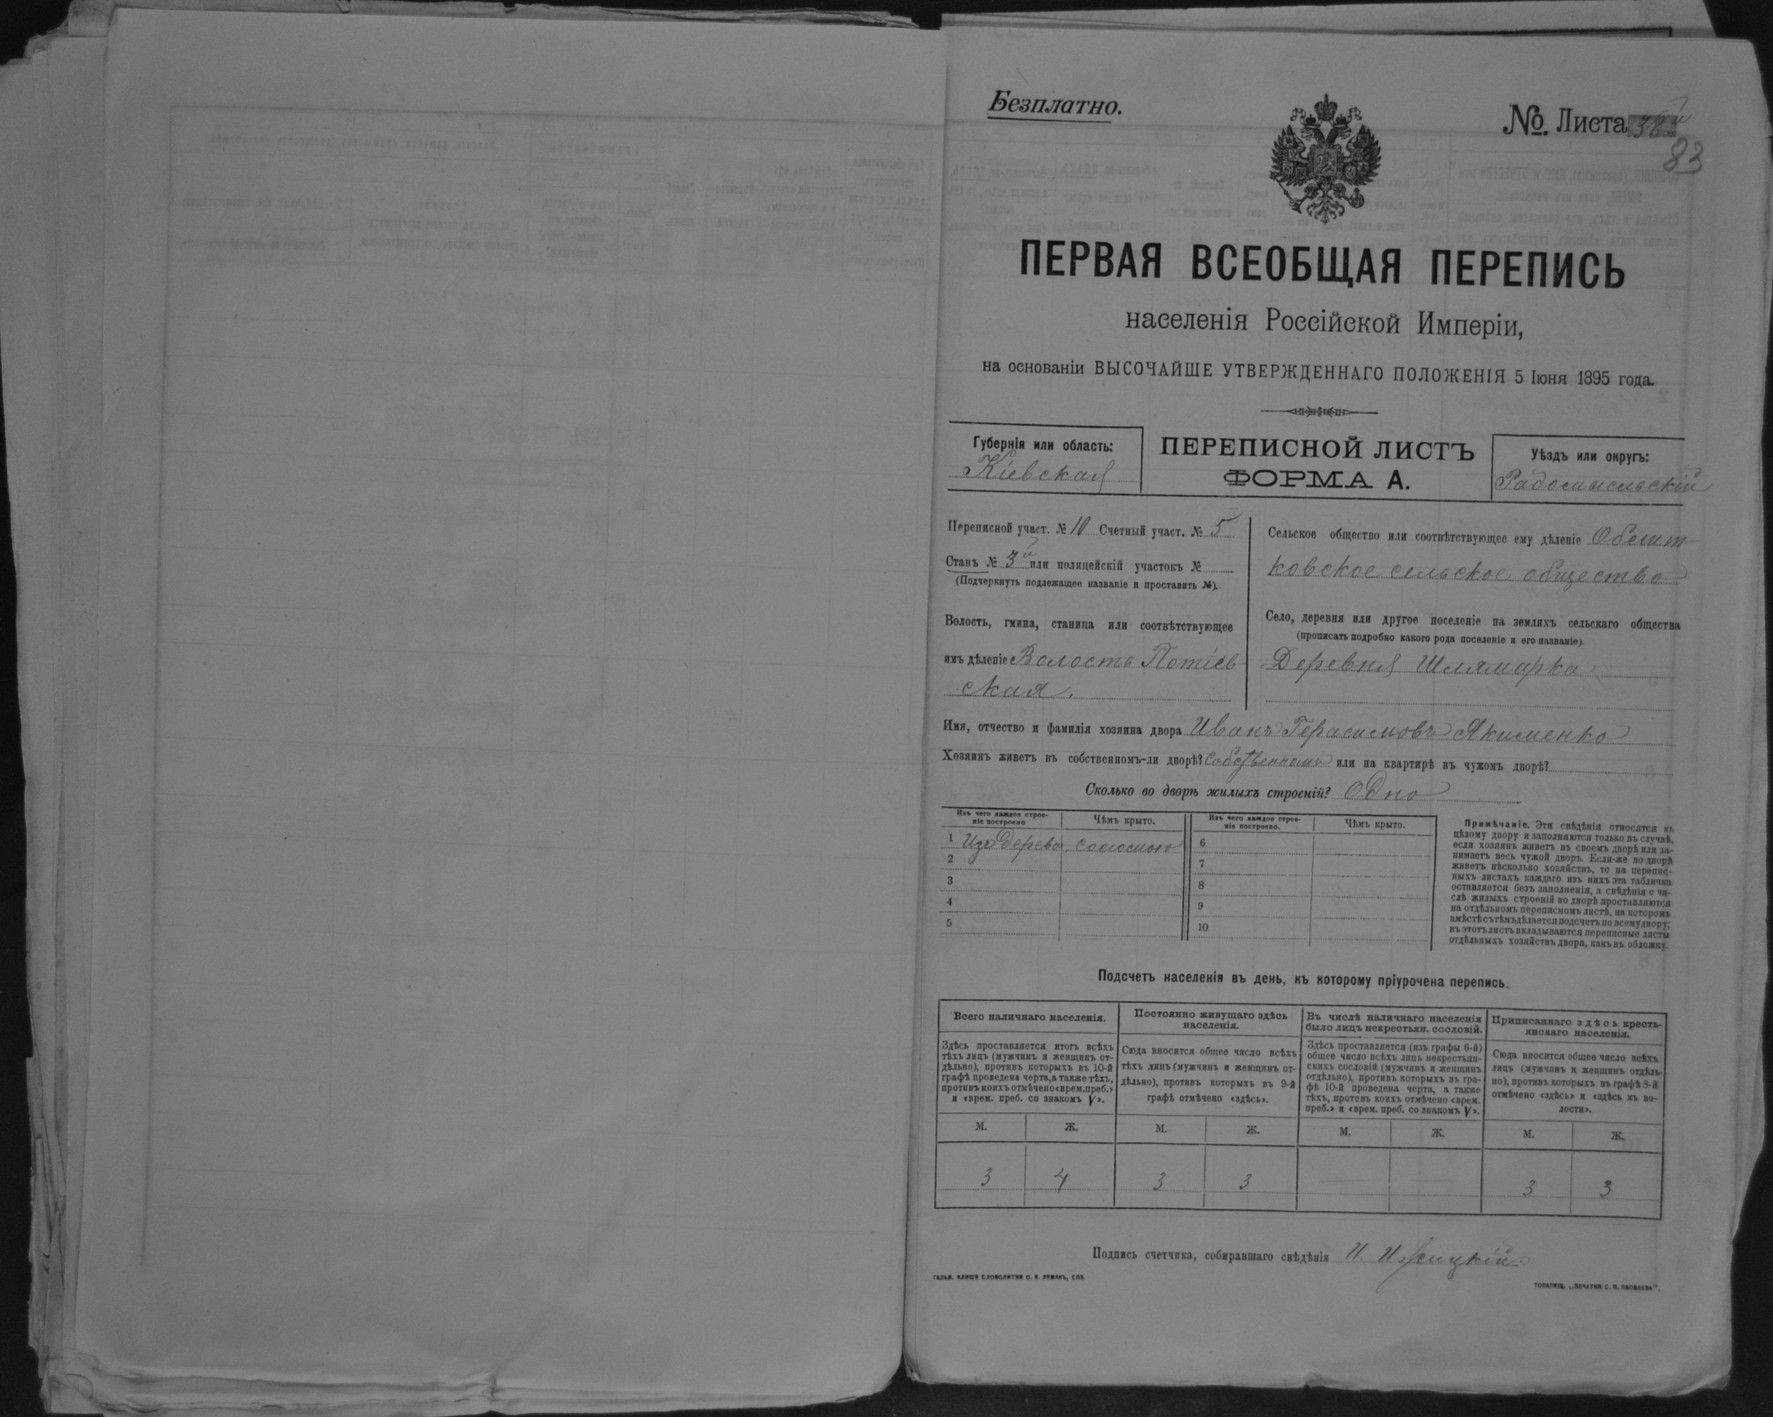 Безплатно.
№. Листа 38й
83
ПЕРВАЯ ВСЕОБЩАЯ ПЕРЕПИСЬ
населенія Россійской Имперіи,
на основаніи ВЫСОЧАЙШЕ УТВЕРЖДЕННАГО ПОЛОЖЕНІЯ 5 Іюня 1895 года.
Губернія или область:
Кіевская
ПЕРЕПИСНОЙ ЛИСТЪ
ФОРМА А.
Уѣздъ или округъ:
Радомысльскій
Переписной участ. № 10 Счетный участ. № 5
Станъ № 3й или полицейскій участокъ №
(Подчеркнуть подлежащее названіе и проставить №).
Волость, гмина, станица или соотвѣтствующее
имъ дѣленіе Волость Потіев-
ская.
Сельское общество или соотвѣтствующее ему дѣленіе Облит-
ковское сельское общество
Село, деревня или другое поселеніе на земляхъ сельскаго общества
(прописать подробно какого рода поселеніе и его названіе).
Деревня Шлямарка
Имя, отчество и фамилія хозяина двора Иванъ Герасимовъ Якименко
Хозяинъ живетъ въ собственномъ-ли дворѣ? Собственномъ или на квартирѣ въ чужомъ дворѣ?
Сколько во дворѣ жилыхъ строеній? Одно
Изъ чего каждое строе-
ніе построено
Чѣмъ крыто.
1 Изъ дерева соломою
2
3
4
5
Изъ чего каждое строе-
ніе построено.
Чѣмъ крыто.
6
7
8
9
10
Примѣчаніе. Эти свѣдѣнія относятся къ
цѣлому двору и заполняются только въ случаѣ,
если хозяинъ живетъ въ своемъ дворѣ или за-
нимаетъ весь чужой дворъ. Если-же во дворѣ
живетъ нѣсколько хозяйствъ, то на перепис-
ныхъ листахъ каждаго изъ нихъ эта табличка
оставляется безъ заполненія, а свѣдѣнія о чи-
слѣ жилыхъ строеній во дворѣ проставляются
на отдѣльномъ переписномъ листѣ, на которомъ
вмѣстѣ съ тѣмъ дѣлается подсчетъ по всему двору;
въ этотъ листъ вкладываются переписные листы
отдѣльныхъ хозяйствъ двора, какъ въ обложку.
Подсчетъ населенія въ день, къ которому пріурочена перепись.
Всего наличнаго населенія.
Здѣсь проставляется итогъ всѣхъ
тѣхъ лицъ (мужчинъ и женщинъ от-
дѣльно), противъ которыхъ въ 10-й
графѣ проведена черта, а также тѣхъ,
противъ коихъ отмѣчено «врем. преб.»
и «врем. преб. со знакомъ V».
М. Ж.
3 4
Постоянно живущаго здѣсь
населенія.
Сюда вносится общее число всѣхъ
тѣхъ лицъ (мужчинъ и женщинъ от-
дѣльно), противъ которыхъ въ 9-й
графѣ отмѣчено «здѣсь».
М. Ж.
3 3
Въ числѣ наличнаго населенія
было лицъ некрестьян. сословій.
Здѣсь проставляется (изъ графы 6-й)
общее число всѣхъ лицъ некрестьян-
скихъ сословій (мужчинъ и женщинъ
отдѣльно), противъ которыхъ въ гра-
фѣ 10-й проведена черта, а также
тѣхъ, противъ коихъ отмѣчено «врем.
преб.» и «врем. преб. со знакомъ V».
М. Ж.
Приписаннаго здѣсь кресть-
янскаго населенія.
Сюда вносится общее число всѣхъ
лицъ (мужчинъ и женщинъ отдѣль-
но), противъ которыхъ въ графѣ 8-й
отмѣчено «здѣсь» и «здѣсь въ во-
лости».
М. Ж.
3 3
Подпись счетчика, собиравшаго свѣдѣнія И.
ГАЛЬВ. КЛИШЕ СЛОВОЛИТНИ О. И. ЛЕМАНЪ, СПБ
ТОВАРИЩ. „ПЕЧАТНЯ С. П. ЯКОВЛЕВА“.